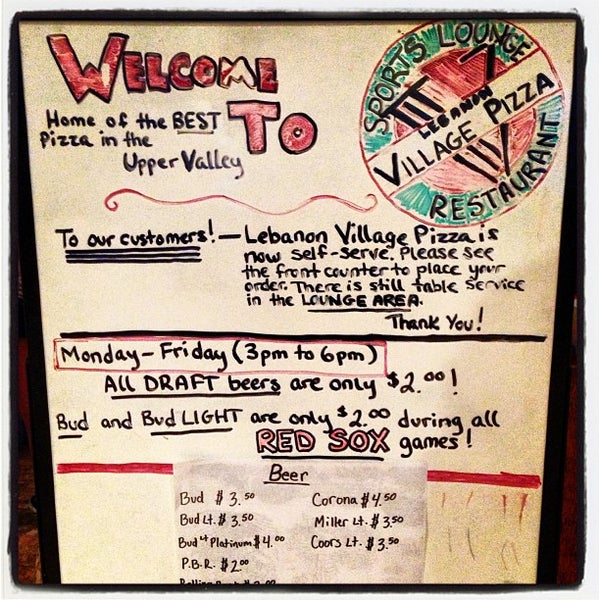 WELCOME
TO
Home of the BEST
Pizza in the
Upper Valley
SPORTS LOUNGE
LEBANON
VILLAGE PIZZA
RESTAURANT
To our customers! — Lebanon Village Pizza is
now self-serve. Please see
the front counter to place your
order. There is still table service
in the LOUNGE AREA.
Thank You!
Monday - Friday (3pm to 6pm)
ALL DRAFT beers are only $2.00!
Bud and Bud LIGHT are only $2.00 during all
RED SOX games!
Beer
Bud $3.50 Corona $4.50
Bud Lt. $3.50 Miller Lt. $3.50
Bud Lt Platinum $4.00 Coors Lt. $3.50
P.B.R. $2.00